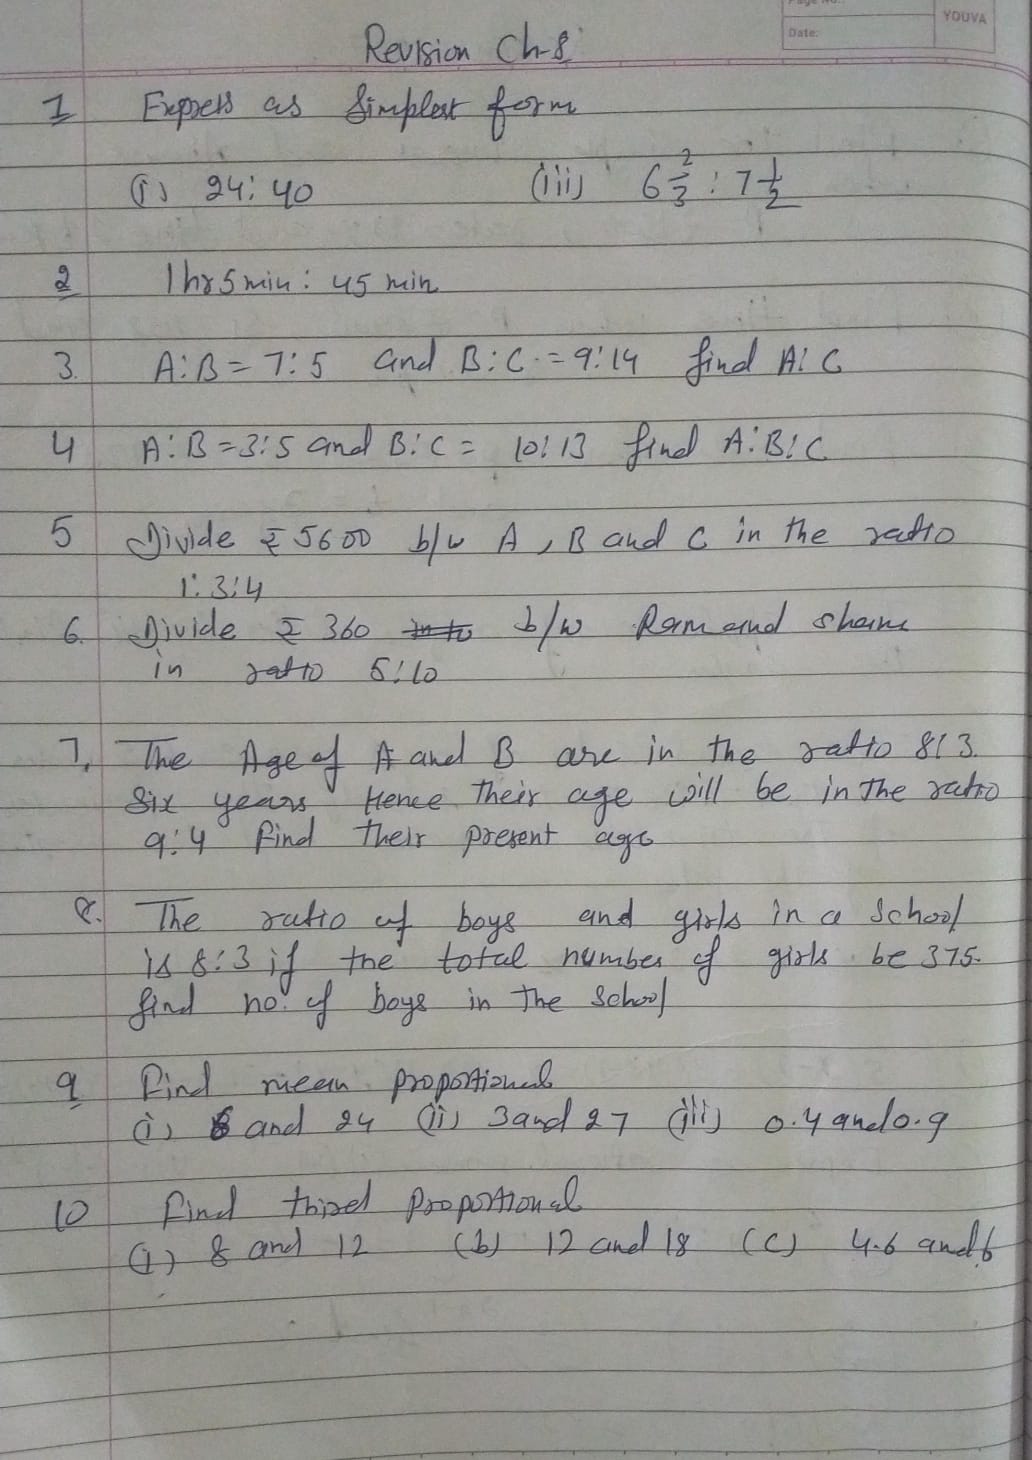 Page No.:
Date:
YOUVA
Revision Ch-8
1 Express as simplest form
(i) 24:40 (iii) 6 2/3 : 7 1/2
2 1 hr 5 min : 45 min
3. A:B = 7:5 and B:C = 9:14 find A:C
4 A:B = 3:5 and B:C = 10:13 find A:B:C
5 Divide ₹ 5600 b/w A, B and C in the ratio
1:3:4
6. Divide ₹ 360 b/w Ram and sham
in ratio 5:10
7. The Age of A and B are in the ratio 8:3.
Six years Hence Their age will be in The ratio
9:4 find Their present age
8. The ratio of boys and girls in a School
is 8:3 if the total number of girls be 375.
find no. of boys in The School
9 Find mean proportional
(i) 6 and 24 (ii) 3 and 27 (iii) 0.4 and 0.9
10 Find third proportional
(i) 8 and 12 (b) 12 and 18 (c) 4.6 and 6